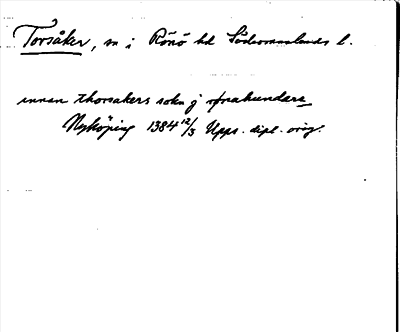 Torsåker, sn i Rönö hd Södermanlands l.
innan thorsakers sokn j opnahundare
Nyköping 1384 12/3 Upps. dipl. orig.